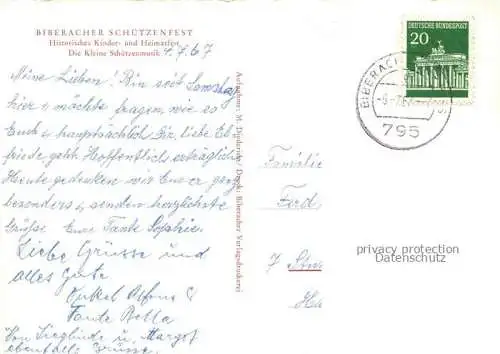 BIBERACHER SCHÜTZENFEST
Historisches Kinder- und Heimatfest
Die Kleine Schützenmusik
7.67
Meine Lieben! Bin seit Samstag
hier & möchte fragen wie es
Euch & hauptsächlich Dir, liebe El-
friede geht. Hoffentlich erträglich.
Heute gedenken wir Euer ganz
besonders & senden herzlichste
Grüße Eure Tante Sophie.
Liebe Grüsse und
alles Gute
Onkel Alfons
Tante Bella
Von Sieglinde u. Margot
ebenfalls Grüsse
Aufnahme: M. Druck: Biberacher Verlagsdruckerei
DEUTSCHE BUNDESPOST
20
BIBERACH
795
Familie
Ferd
7
privacy protection
Datenschutz